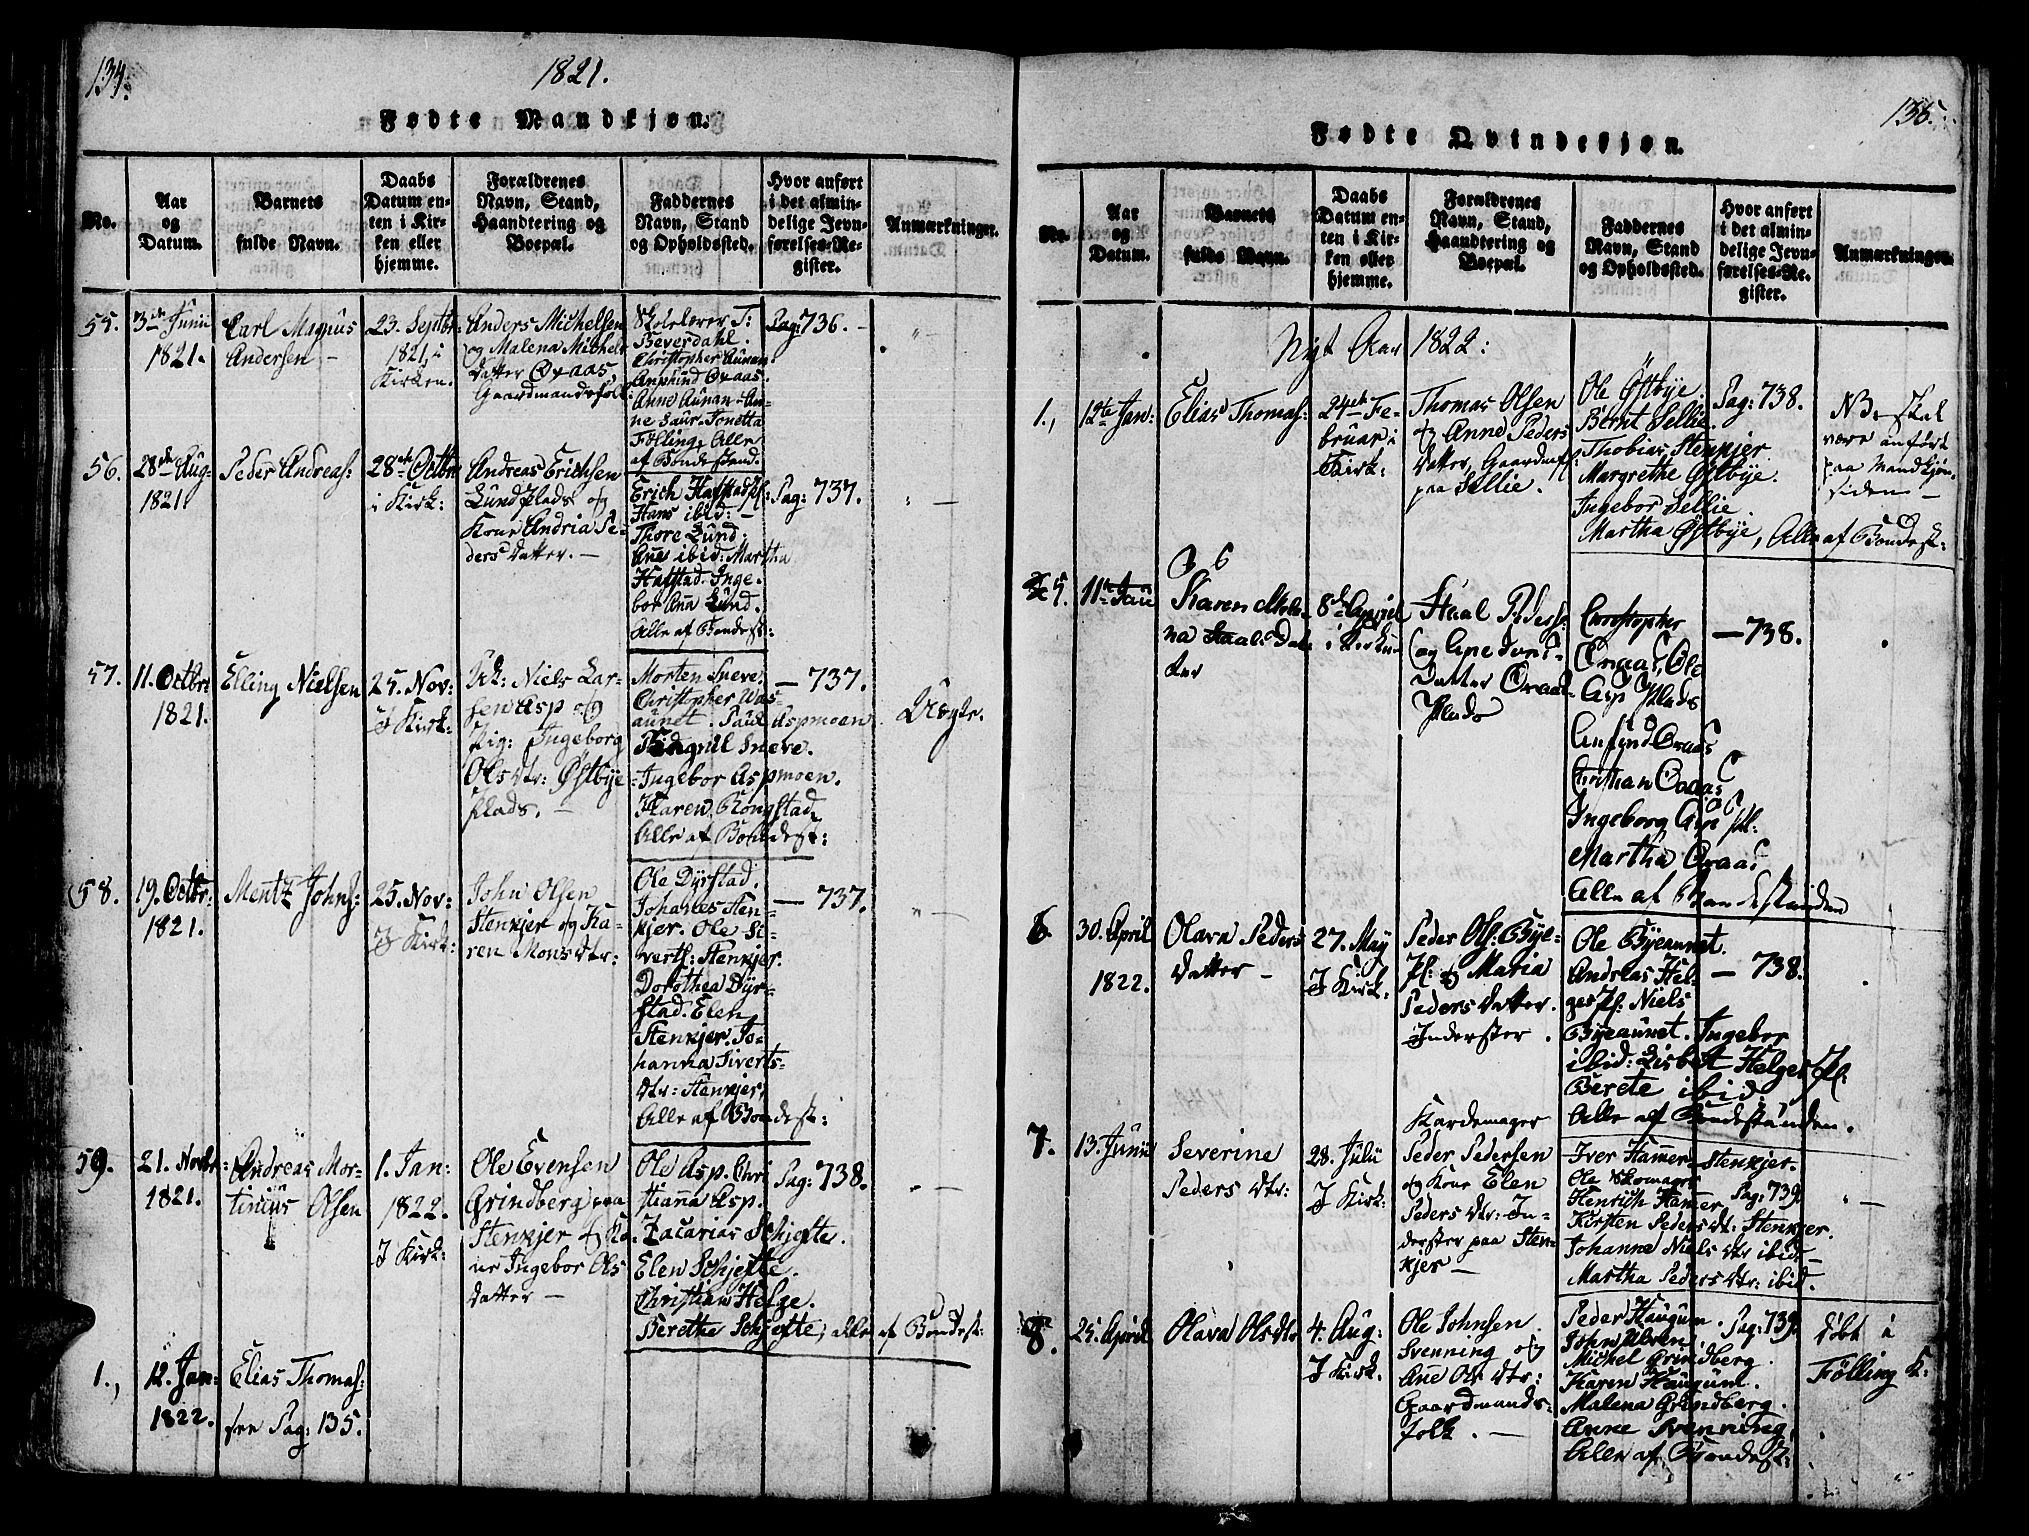 134.
1821.
Fødte Mandkjøn.
No.
Aar
og
Datum.
Barnets
fulde Navn.
Daabs
Datum en-
ten i Kir-
ken eller
hjemme.
Forældrenes
Navn, Stand,
Haandtering og
Boepæl.
Faddernes
Navn, Stand
og Opholdssted.
Hvor anført
i det almin-
delige Jevn-
førelses-Re-
gister.
Anmærkninger.
55.
3de Junii
1821.
Carl Magnus
Andersen –
23. Septbr:
1821, i
Kirken.
Anders Michelsen
og Malena Michels
Datter Qvaas,
Gaardmandsfolk
Skolelærer T:
Beverdahl.
Christopher Aunan.
Amphind Qvaas.
Anne Aunan – An-
ne Saur. Tonetta
Følling, Alle
af Bondestand.
Pag: 736. –
„ –
56.
28de Aug.
1821.
Peder Andreas:
28de Octbr
i Kirk:
Andreas Erichsen
Lund Plads og
Kone Andria Pe-
ders Datter. –
Erich Hafstad Pl:
Hans ibid: –
Thore Lund:
Ane ibid: Martha
Hafstad. Inge-
bor Ana Lund.
Alle af Bondest:
Pag: 737.
„ –
57.
11. Octbr
1821.
Elling Nielsen
25. Nov:
I Kirk:
Uk: Niels Lar-
sen Asp og
Pig: Ingeborg
Ols dtr: Østbye
Plads. –
Morten Sneve.
Christopher Was-
aunet. Paul Aspmoen.
Sneve.
Ingebor Aspmoen.
Karen Rongstad
Alle af Bondest:
– 737.
Uægte.
58.
19. Octbr.
1821.
Mentz Johns:
25. Nov:
I Kirk:
John Olsen
Stenkjer og Ka-
ren Mons dtr:
Ole Dyrstad.
Johanes Sten-
kjer. Ole Si-
vertf: Stenkjer.
Dorothea Dyr-
stad. Elen
Stenkjer. Jo-
hanna Siverts-
dtr: Stenkjer,
Alle af Bondest:
– 737.
„ –
59.
21. Novbr:
1821.
Andreas Mor-
tinius Olsen
1. Jan:
1822.
I Kirk:
Ole Evensen
Grindberg paa
Stenkjer og Ko-
ne Ingebor Ols
datter –
Ole Asp. Chri
stianna Asp.
Zacarias Schjefte.
Elen Schjefte.
Christian Helge.
Berethe Schjefte, alle af Bondest:
Pag: 738.
„ –
1.,
12. Jan:
1822.
Elias Thomas:
see Pag: 135.
135.
Fødte Qvindekjøn.
No.
Aar
og
Datum.
Barnets
fulde Navn.
Daabs
Datum en-
ten i Kir-
ken eller
hjemme.
Forældrenes
Navn, Stand,
Haandtering og
Boepæl.
Faddernes
Navn, Stand
og Opholdssted.
Hvor anført
i det almin-
delige Jevn-
førelses-Re-
gister.
Anmærkninger.
Nyt Aar 1822:
1.,
12te Jan:
Elias Thomas:
24de Fe-
bruar i
Kirk:
Thomas Olsen
og Anne Peders
Datter, Gaardmf:
paa Sellie.
Ole Østbye.
Bernt Sellie.
Thobias Stenkjer
Margrethe Østbye.
Ingebor Sellie.
Martha Østbye, Alle af Bondest:
Pag: 738.
NB. skal
være anført
paa Mandkjøn
siden –
5.
11te Jan
Karen
na Staals Dat-
ter
8de April
i Kirken
Staal Peders:
og Ane Jons-
Datter Qvaas
Plads
Christopher
Qvaas, Ole
Asp Plads
Amfynd Qvaas
Christian Qvaas
Ingeborg Asp Pl:
Martha Qvaas
Alle af Bondestanden
– 738.
6
30. April
1822.
Olava Peders
datter –
27. May
I Kirk:
Peder Ols: Bye-
Pl: og Maria
Peders datter.
Inderster.
Ole Byeaunet.
Andreas Hel-
ges Pl: Niels
Byeaunet. Ingebor
ibid: Lisbet Helges Pl:
Berete ibid.
Alle af Bondestanden.
– 738.
7.
13. Junii
Severine
Peders dtr:
28. Julii
I Kirk:
Kardemager
Peder Pedersen
og Kone Elen
Peders dtr: In-
derster paa Sten-
kjer –
Iver Hammer – Stenkjer.
Ole Skomager
Henrich Hamer
Kirsten Peders dt: Stenkjer.
Johanne Niels dtr ibid –
Martha Peders dtr: ibid.
Pag: 739.
„ –
8.
25. April
Olava Ols dtr
4. Aug:
I Kirk.
Ole Johnsen
Svenning og
Ane Ols dtr:
Gaardmands-
folk. –
Peder Haugum.
John
Michel Grindberg.
Karen Haugum.
Malena Grindberg.
Anne Svenning.
Alle af Bondest:
Pag: 739.
døbt i
Følling K: